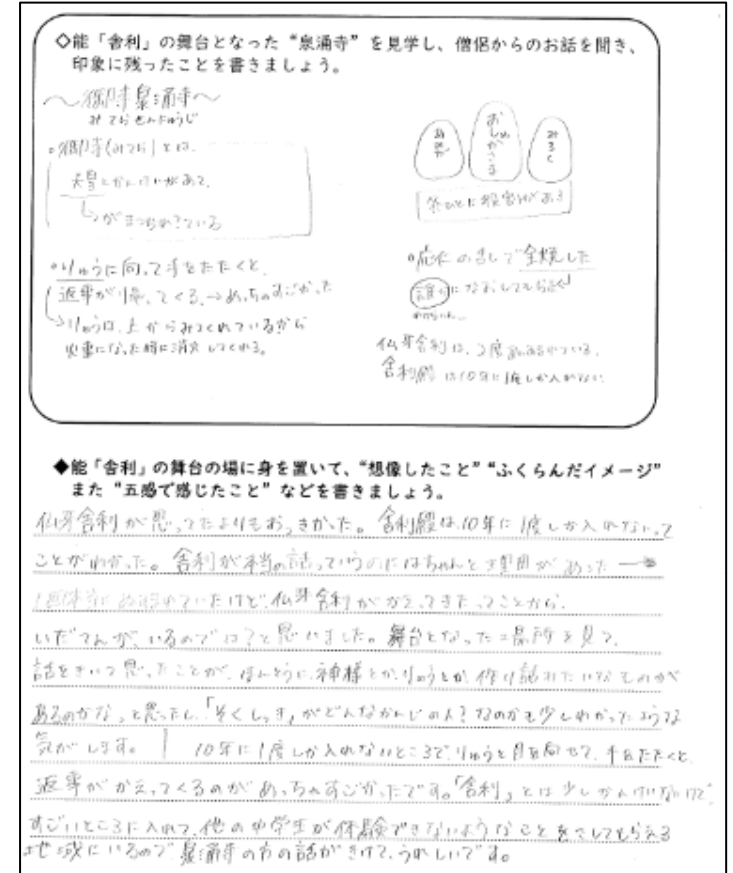 ◇能「舎利」の舞台となった“泉涌寺”を見学し、僧侶からのお話を聞き、
印象に残ったことを書きましょう。
〜御寺泉涌寺〜
みてらせんにゅうじ
・御寺(みてら)とは、
天皇とかんけいがあって、
・りゅうに向って手をたたくと、
返事が帰ってくる。→めっちゃすごかった
→りゅうは、上からみてくれているから
火事になった時に消火してくれる。
あみだ
おしゃかさま
みろく
・応仁の乱で全焼した
誰かになおしてもらった
わからん
仏牙舎利は、2度
舎利殿は10年に1度しか入れない
◆能「舎利」の舞台の場に身を置いて、“想像したこと”“ふくらんだイメージ”
また“五感で感じたこと”などを書きましょう。
仏牙舎利が思ってたよりもおっきかった。舎利殿は、10年に1度しか入れないって
ことがわかった。舎利が本当の話っていうのにはちゃんと理由があった
1回本当に ていたけど、仏牙舎利がかえってきたってことから、
いだてんが、いるのでは?と思いました。舞台となった場所を見て、
話をきいて思ったことが、ほんとうに神様とか、りゅうとか、作り話みたいなものが
あるのかな、と思ったし、「そくしっき」がどんなかんじの人?なのかも少しわかったような
気がします。 10年に1度しか入れないところで、りゅうと目を合わせて、手をたたくと、
返事がかえってくるのがめっちゃすごかったです。「舎利」とは少しかんけいないけど、
すごいところに入れて、他の中学生が体験できないようなことをさしてもらえる
地域にいるので泉涌寺の方の話がきけて、うれしいです。